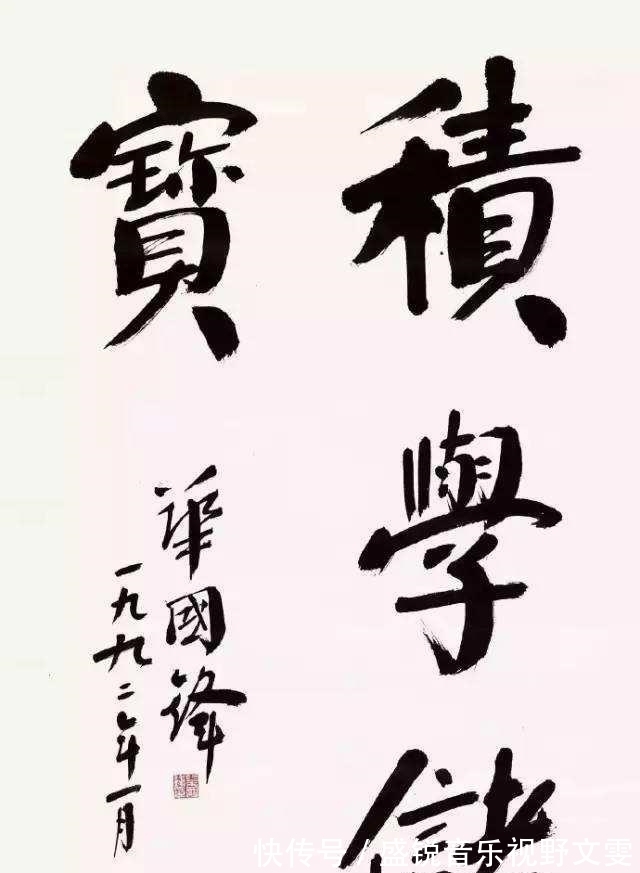 積學儲
寶
華國鋒
一九九二年一月
快传号 / 盛锐音乐视野文雯